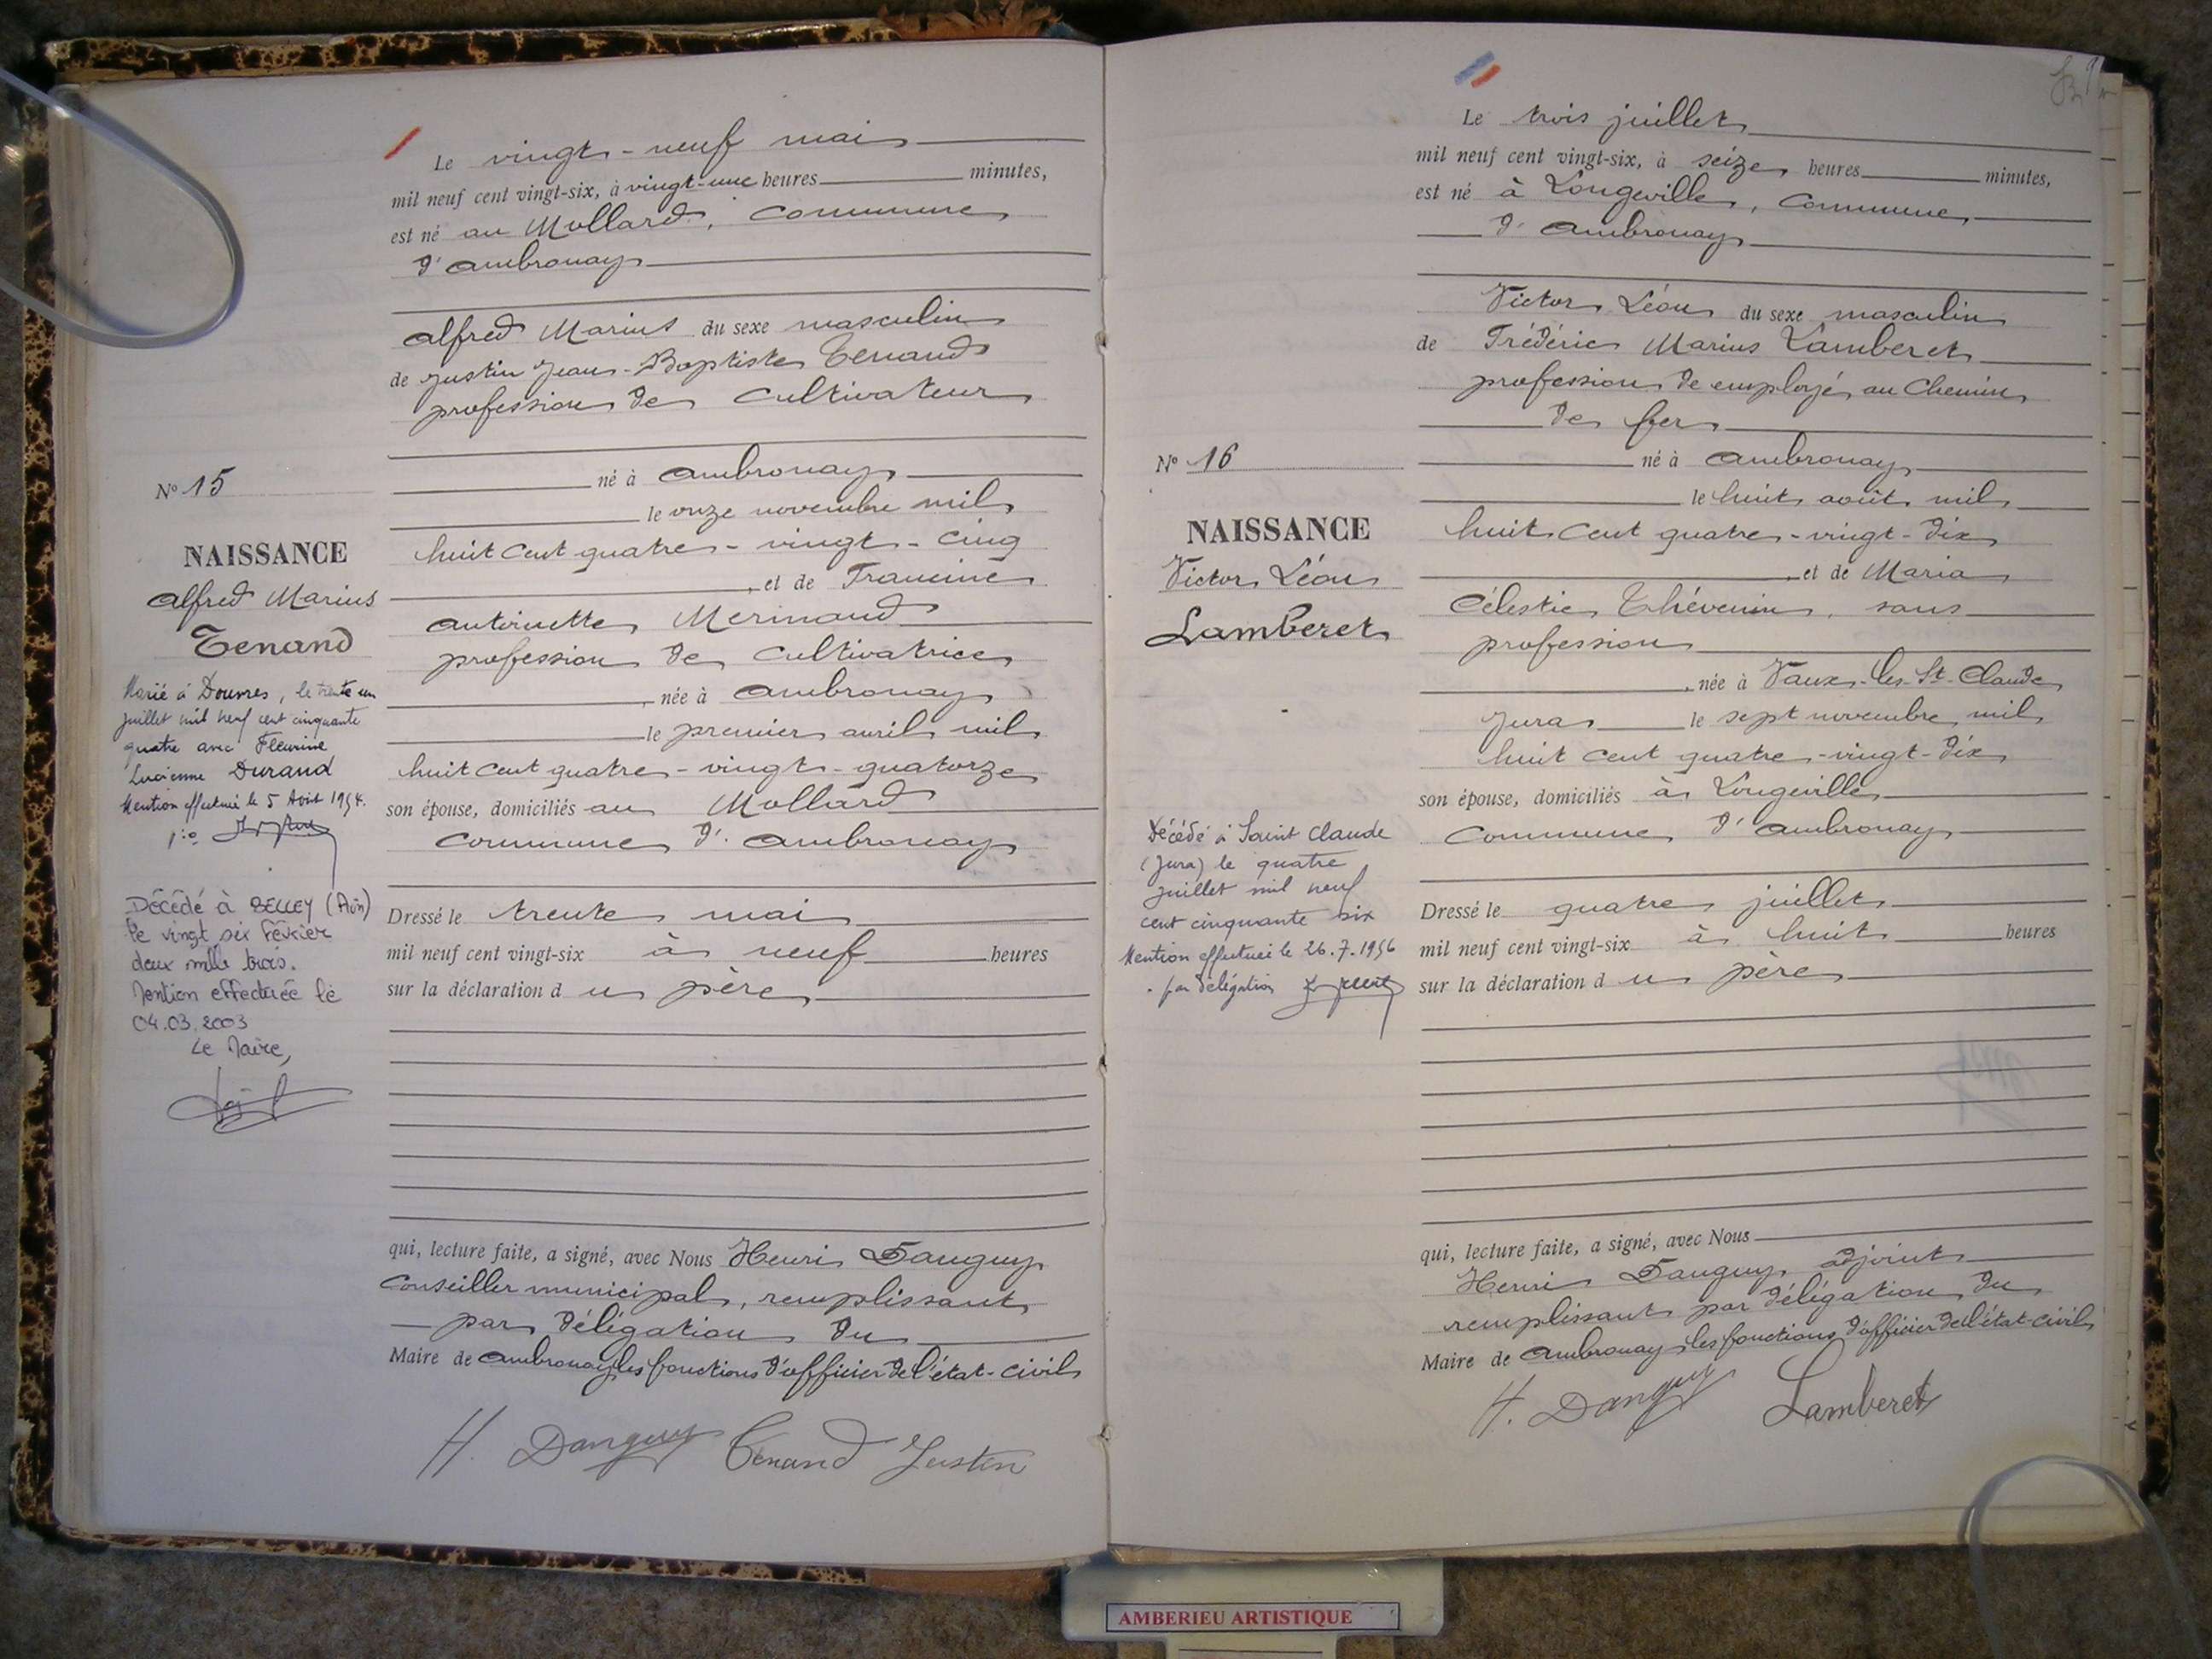 Le vingt-neuf mai
mil neuf cent vingt-six, à vingt-une heures minutes,
est né au Mollard, commune
d'Ambronay
Alfred Marius du sexe masculin
de Justin Jean-Baptiste Tenand
profession de cultivateur
né à Ambronay
le onze novembre mil
huit cent quatre-vingt-cinq
et de Francine
Antoinette Merinand
profession de cultivatrice
née à Ambronay
le premier avril mil
huit cent quatre-vingt-quatorze
son épouse, domiciliés au Mollard
commune d'Ambronay
Dressé le trente mai
mil neuf cent vingt-six à neuf heures
sur la déclaration du père
qui, lecture faite, a signé, avec Nous Henri Danguy
Conseiller municipal, remplissant
par délégation du
Maire de Ambronay les fonctions d'officier de l'état-civil
H. Danguy Tenand Justin
N° 15
NAISSANCE
Alfred Marius
Tenand
Marié à Douvres, le trente un
juillet mil neuf cent cinquante
quatre avec Fleurine
Lucienne Durand
Mention effectuée le 5 Août 1954.
Décédé à BELLEY (Ain)
le vingt six février
deux mille trois.
Mention effectuée le
04.03.2003
Le Maire,
Le trois juillet
mil neuf cent vingt-six, à seize heures minutes,
est né à Longeville, commune
d'Ambronay
Victor Léon du sexe masculin
de Frédéric Marius Lamberet
profession de employé au Chemin
de fer
né à Ambronay
le huit août mil
huit cent quatre-vingt-dix
et de Maria
Célestie Thévenin, sans
profession
née à Vaux-les-St-Claude
Jura le sept novembre mil
huit cent quatre-vingt-dix
son épouse, domiciliés à Longeville
commune d'Ambronay
Dressé le quatre juillet
mil neuf cent vingt-six à huit heures
sur la déclaration du père
qui, lecture faite, a signé, avec Nous
Henri Danguy adjoint
remplissant par délégation du
Maire de Ambronay les fonctions d'officier de l'état-civil
H. Danguy Lamberet
N° 16
NAISSANCE
Victor Léon
Lamberet
Décédé à Saint Claude
(Jura) le quatre
juillet mil neuf
cent cinquante six
Mention effectuée le 26.7.1956
par délégation
AMBERIEU ARTISTIQUE